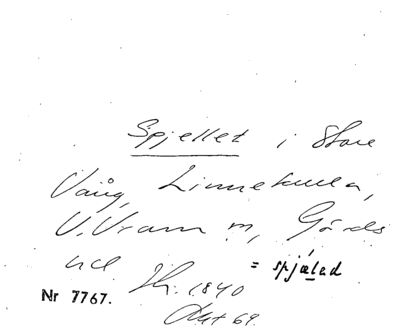 Spjellet i Store
Vång, Linnekulla,
V. Vram m, Gärds
hd Sk. 1840
= spjælad
Nr 7767. Akt 69.